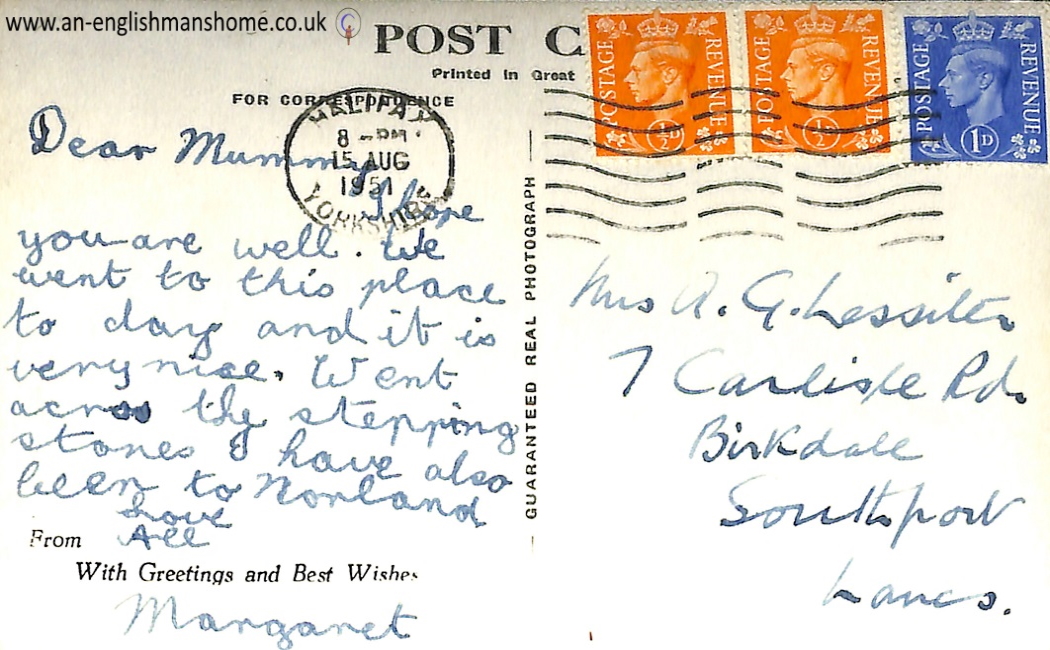 www.an-englishmanshome.co.uk
POST C
Printed in Great
FOR CORRESPONDENCE
HALIFAX
8 - PM
15 AUG
1951
YORKSHIRE
POSTAGE REVENUE
½D
POSTAGE REVENUE
½D
POSTAGE REVENUE
1D
Dear Mummy
I hope
you are well. We
went to this place
to day and it is
very nice. Went
across the stepping
stones I have also
been to Norland
Love
From All
With Greetings and Best Wishes
Margaret
GUARANTEED REAL PHOTOGRAPH
Mrs A. G. Lessiter
7 Carlisle Rd.
Birkdale
Southport
Lancs.